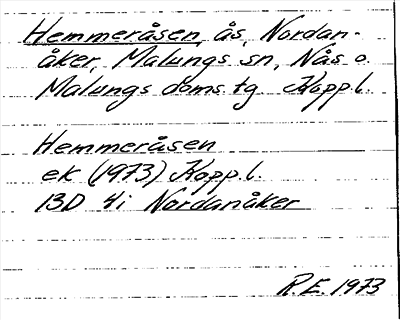 Hemmeråsen, ås, Nordan-
åker, Malungs sn, Nås o.
Malungs doms. tg Kopp. l.
Hemmeråsen
ek (1973) Kopp. l.
13D 4i Nordanåker
R.E. 1973